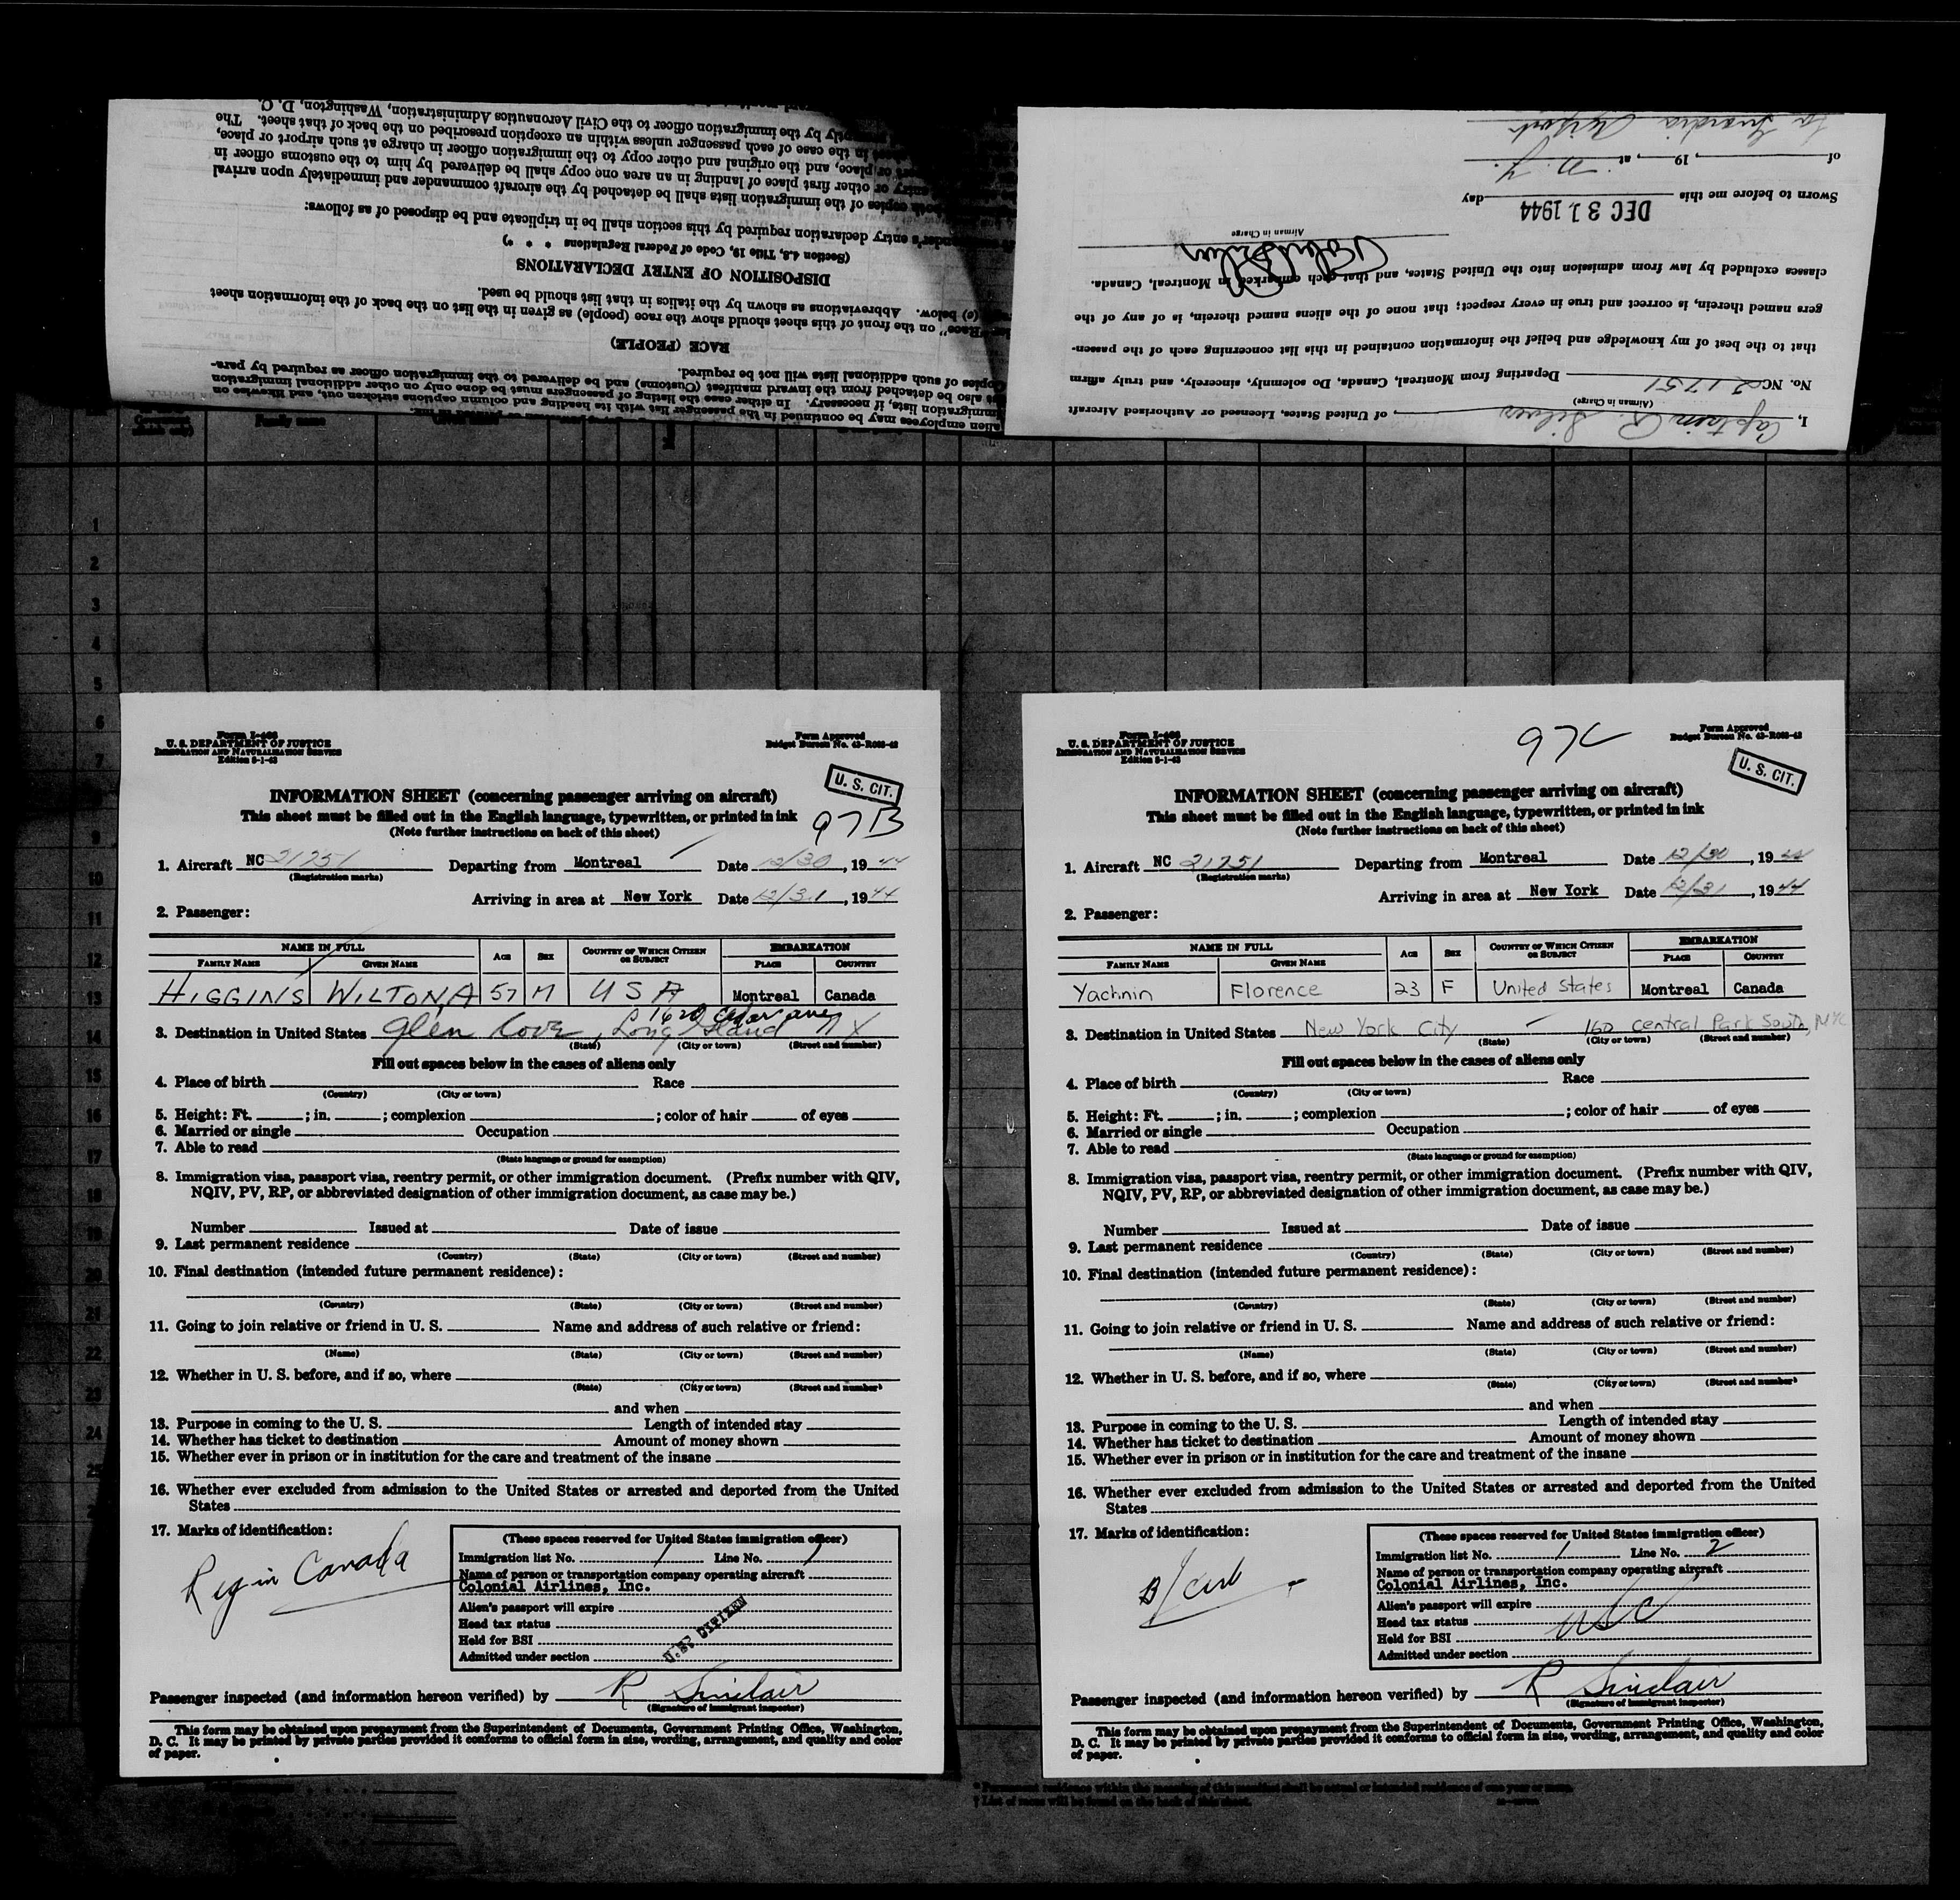 ptly by the immigration officer to the Civil Aeronautics Administration, Washington, D. C.
in the case of each passenger unless within an exception prescribed on the back of that sheet. The
or place, and the original and other copy to the immigration officer in charge at such airport or place,
entry or other first place of landing in an area one copy shall be delivered by him to the customs officer in
copies of the immigration lists shall be detached by the aircraft commander and immediately upon arrival
entry declaration required by this section shall be in triplicate and be disposed of as follows:
(Section 4.8, Title 19, Code of Federal Regulations * * *)
DISPOSITION OF ENTRY DECLARATIONS
(e) below. Abbreviations as shown by the italics in that list should be used.
"Race" on the front of this sheet should show the race (people) as given in the list on the back of the information sheet
RACE (PEOPLE)
Copies of such additional lists will not be required.
also be detached from the inward manifest (Customs) and be delivered to the immigration officer as required by para-
immigration lists, if necessary. In either case the listing of passengers must be done only on other additional immigration
alien employees may be continued in the passenger list with its heading and column captions stricken out, and likewise on
I, Captain R. Silver of United States, Licensed or Authorized Aircraft
(Airman in Charge)
No. NC 21751 Departing from Montreal, Canada, Do solemnly, sincerely, and truly affirm
that to the best of my knowledge and belief the information contained in this list concerning each of the passen-
gers named therein, is correct and true in every respect; that none of the aliens named therein, is of any of the
classes excluded by law from admission into the United States, and that each embarked in Montreal, Canada.
Airman in Charge
DEC 31 1944
Sworn to before me this day
of , 19 , at N. Y.
La Guardia Airport
Family name
1
2
3
4
5
6
7
9
10
11
12
13
14
15
16
17
18
19
20
21
22
23
24
25
Form I-466
U. S. DEPARTMENT OF JUSTICE
IMMIGRATION AND NATURALIZATION SERVICE
Edition 5-1-43
Form Approved
Budget Bureau No. 43-R063-42
U. S. CIT.
INFORMATION SHEET (concerning passenger arriving on aircraft)
This sheet must be filled out in the English language, typewritten, or printed in ink
97B
(Note further instructions on back of this sheet)
1. Aircraft NC 21751 Departing from Montreal Date 12/30, 1944
(Registration marks)
Arriving in area at New York Date 12/31, 1944
2. Passenger:
NAME IN FULL AGE SEX COUNTRY OF WHICH CITIZEN OR SUBJECT EMBARKATION
FAMILY NAME GIVEN NAME PLACE COUNTRY
HIGGINS WILTON A 57 M USA Montreal Canada
3. Destination in United States Glen Cove, Long Island N Y
(State) (City or town) (Street and number)
Fill out spaces below in the cases of aliens only
4. Place of birth Race
(Country) (City or town)
5. Height: Ft. ; in. ; complexion ; color of hair of eyes
6. Married or single Occupation
7. Able to read
(State language or ground for exemption)
8. Immigration visa, passport visa, reentry permit, or other immigration document. (Prefix number with QIV,
NQIV, PV, RP, or abbreviated designation of other immigration document, as case may be.)
Number Issued at Date of issue
9. Last permanent residence
(Country) (State) (City or town) (Street and number)
10. Final destination (intended future permanent residence):
(Country) (State) (City or town) (Street and number)
11. Going to join relative or friend in U. S. Name and address of such relative or friend:
(Name) (State) (City or town) (Street and number)
12. Whether in U. S. before, and if so, where
(State) (City or town) (Street and number)
and when
13. Purpose in coming to the U. S. Length of intended stay
14. Whether has ticket to destination Amount of money shown
15. Whether ever in prison or in institution for the care and treatment of the insane
16. Whether ever excluded from admission to the United States or arrested and deported from the United
States
17. Marks of identification:
Reg in Canada
(These spaces reserved for United States immigration officer)
Immigration list No. 1 Line No. 1
Name of person or transportation company operating aircraft
Colonial Airlines, Inc.
Alien's passport will expire
Head tax status
Held for BSI
Admitted under section
U. S. CITIZEN
Passenger inspected (and information hereon verified) by R Sinclair
(Signature of immigrant inspector)
This form may be obtained upon prepayment from the Superintendent of Documents, Government Printing Office, Washington,
D. C. It may be printed by private parties provided it conforms to official form in size, wording, arrangement, and quality and color
of paper.
Form I-466
U. S. DEPARTMENT OF JUSTICE
IMMIGRATION AND NATURALIZATION SERVICE
Edition 5-1-43
97C
Form Approved
Budget Bureau No. 43-R063-42
U. S. CIT.
INFORMATION SHEET (concerning passenger arriving on aircraft)
This sheet must be filled out in the English language, typewritten, or printed in ink
(Note further instructions on back of this sheet)
1. Aircraft NC 21751 Departing from Montreal Date 12/30, 1944
(Registration marks)
Arriving in area at New York Date 12/31, 1944
2. Passenger:
NAME IN FULL AGE SEX COUNTRY OF WHICH CITIZEN OR SUBJECT EMBARKATION
FAMILY NAME GIVEN NAME PLACE COUNTRY
Yachnin Florence 23 F United States Montreal Canada
3. Destination in United States New York City – 160 Central Park South, NYC
(State) (City or town) (Street and number)
Fill out spaces below in the cases of aliens only
4. Place of birth Race
(Country) (City or town)
5. Height: Ft. ; in. ; complexion ; color of hair of eyes
6. Married or single Occupation
7. Able to read
(State language or ground for exemption)
8. Immigration visa, passport visa, reentry permit, or other immigration document. (Prefix number with QIV,
NQIV, PV, RP, or abbreviated designation of other immigration document, as case may be.)
Number Issued at Date of issue
9. Last permanent residence
(Country) (State) (City or town) (Street and number)
10. Final destination (intended future permanent residence):
(Country) (State) (City or town) (Street and number)
11. Going to join relative or friend in U. S. Name and address of such relative or friend:
(Name) (State) (City or town) (Street and number)
12. Whether in U. S. before, and if so, where
(State) (City or town) (Street and number)
and when
13. Purpose in coming to the U. S. Length of intended stay
14. Whether has ticket to destination Amount of money shown
15. Whether ever in prison or in institution for the care and treatment of the insane
16. Whether ever excluded from admission to the United States or arrested and deported from the United
States
17. Marks of identification:
B/Cert
(These spaces reserved for United States immigration officer)
Immigration list No. 1 Line No. 2
Name of person or transportation company operating aircraft
Colonial Airlines, Inc.
Alien's passport will expire
Head tax status
USC
Held for BSI
Admitted under section
Passenger inspected (and information hereon verified) by R Sinclair
(Signature of immigrant inspector)
This form may be obtained upon prepayment from the Superintendent of Documents, Government Printing Office, Washington,
D. C. It may be printed by private parties provided it conforms to official form in size, wording, arrangement, and quality and color
of paper.
* Permanent residence within the meaning of this manifest shall be actual or intended residence of one year or more.
† List of races will be found on the back of this sheet.